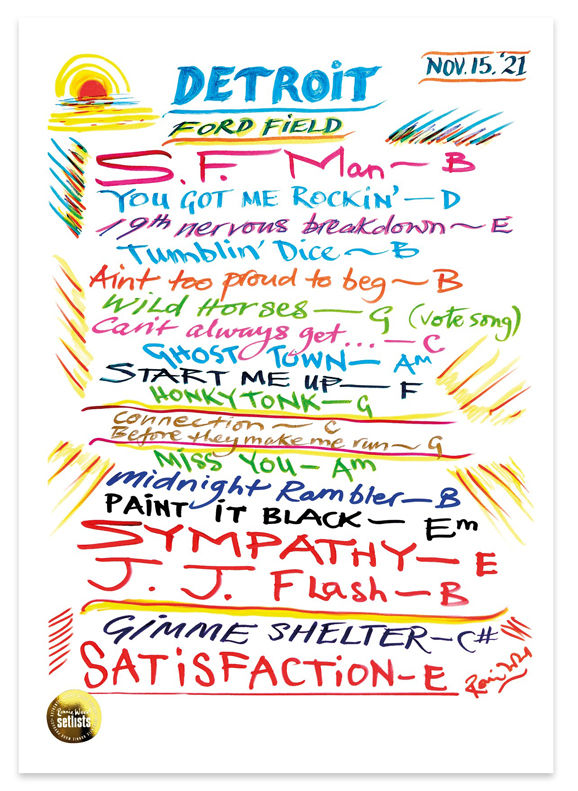 DETROIT
NOV. 15. '21
FORD FIELD
S.F. Man ~ B
YOU GOT ME ROCKIN' — D
19th nervous breakdown ~ E
Tumblin' Dice ~ B
Aint too proud to beg ~ B
WILD HORSES — G (vote song)
Can't always get... — C
GHOST TOWN — Am
START ME UP — F
HONKY TONK — G
connection ~ C
Before they make me run ~ G
MISS YOU — Am
Midnight Rambler — B
PAINT IT BLACK — Em
SYMPATHY — E
J. J. Flash — B
GIMME SHELTER — C#
SATISFACTION — E
Ronnie Wood
setlists